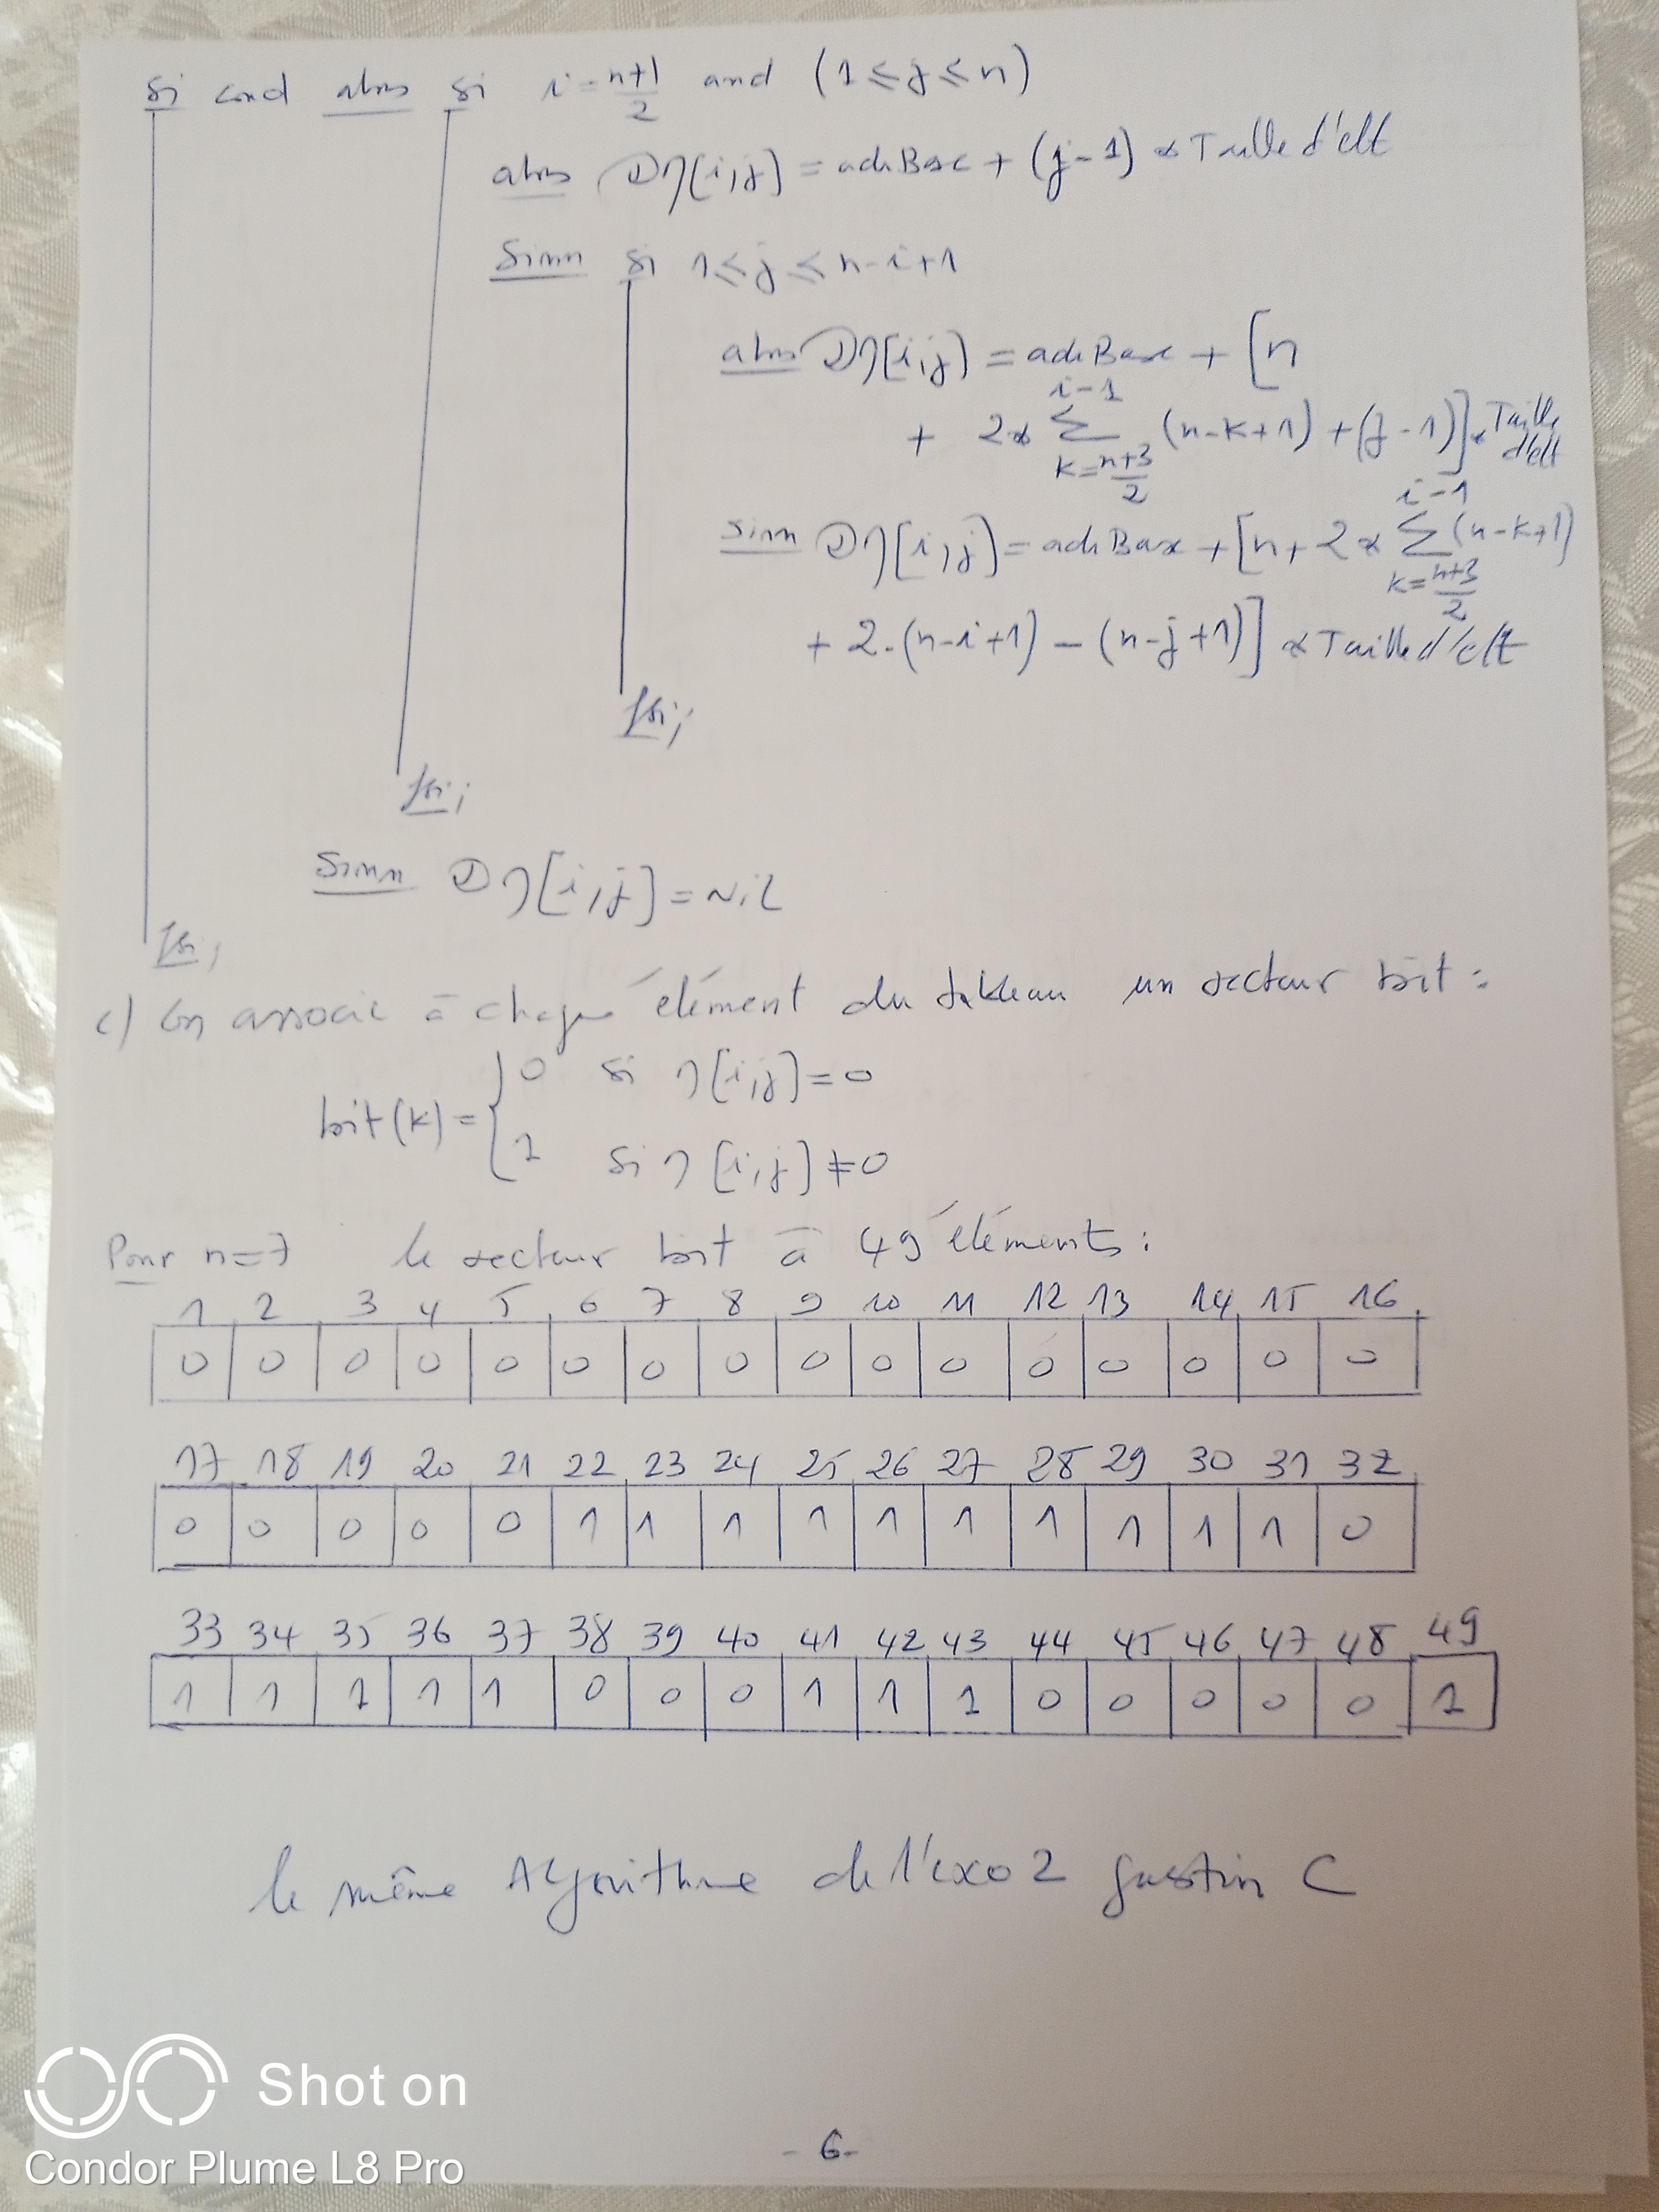 si cond alors si i = n+1/2 and (1 ≤ j ≤ n)
alors @M[i,j] = adrBase + (j-1) * Taille d'elt
sinon si 1 ≤ j ≤ n-i+1
alors @M[i,j] = adrBase + [n
+ 2* ∑ (k=n+3/2 → i-1) (n-k+1) + (j-1)] * Taille d'elt
sinon @M[i,j] = adrBase + [n + 2* ∑ (k=n+3/2 → i-1) (n-k+1)
+ 2.(n-i+1) - (n-j+1)] * Taille d'elt
fsi;
fsi;
sinon @M[i,j] = Nil
fsi;
c) On associe à chaque élément du tableau un vecteur bit :
bit(k) = { 0 si M[i,j] = 0
1 si M[i,j] ≠ 0
Pour n=7 le vecteur bit à 49 éléments :
1 2 3 4 5 6 7 8 9 10 11 12 13 14 15 16
0 0 0 0 0 0 0 0 0 0 0 0 0 0 0 0
17 18 19 20 21 22 23 24 25 26 27 28 29 30 31 32
0 0 0 0 0 1 1 1 1 1 1 1 1 1 1 0
33 34 35 36 37 38 39 40 41 42 43 44 45 46 47 48 49
1 1 1 1 1 0 0 0 1 1 1 0 0 0 0 0 1
le même Algorithme de l'exo 2 question C
-6-
Shot on
Condor Plume L8 Pro